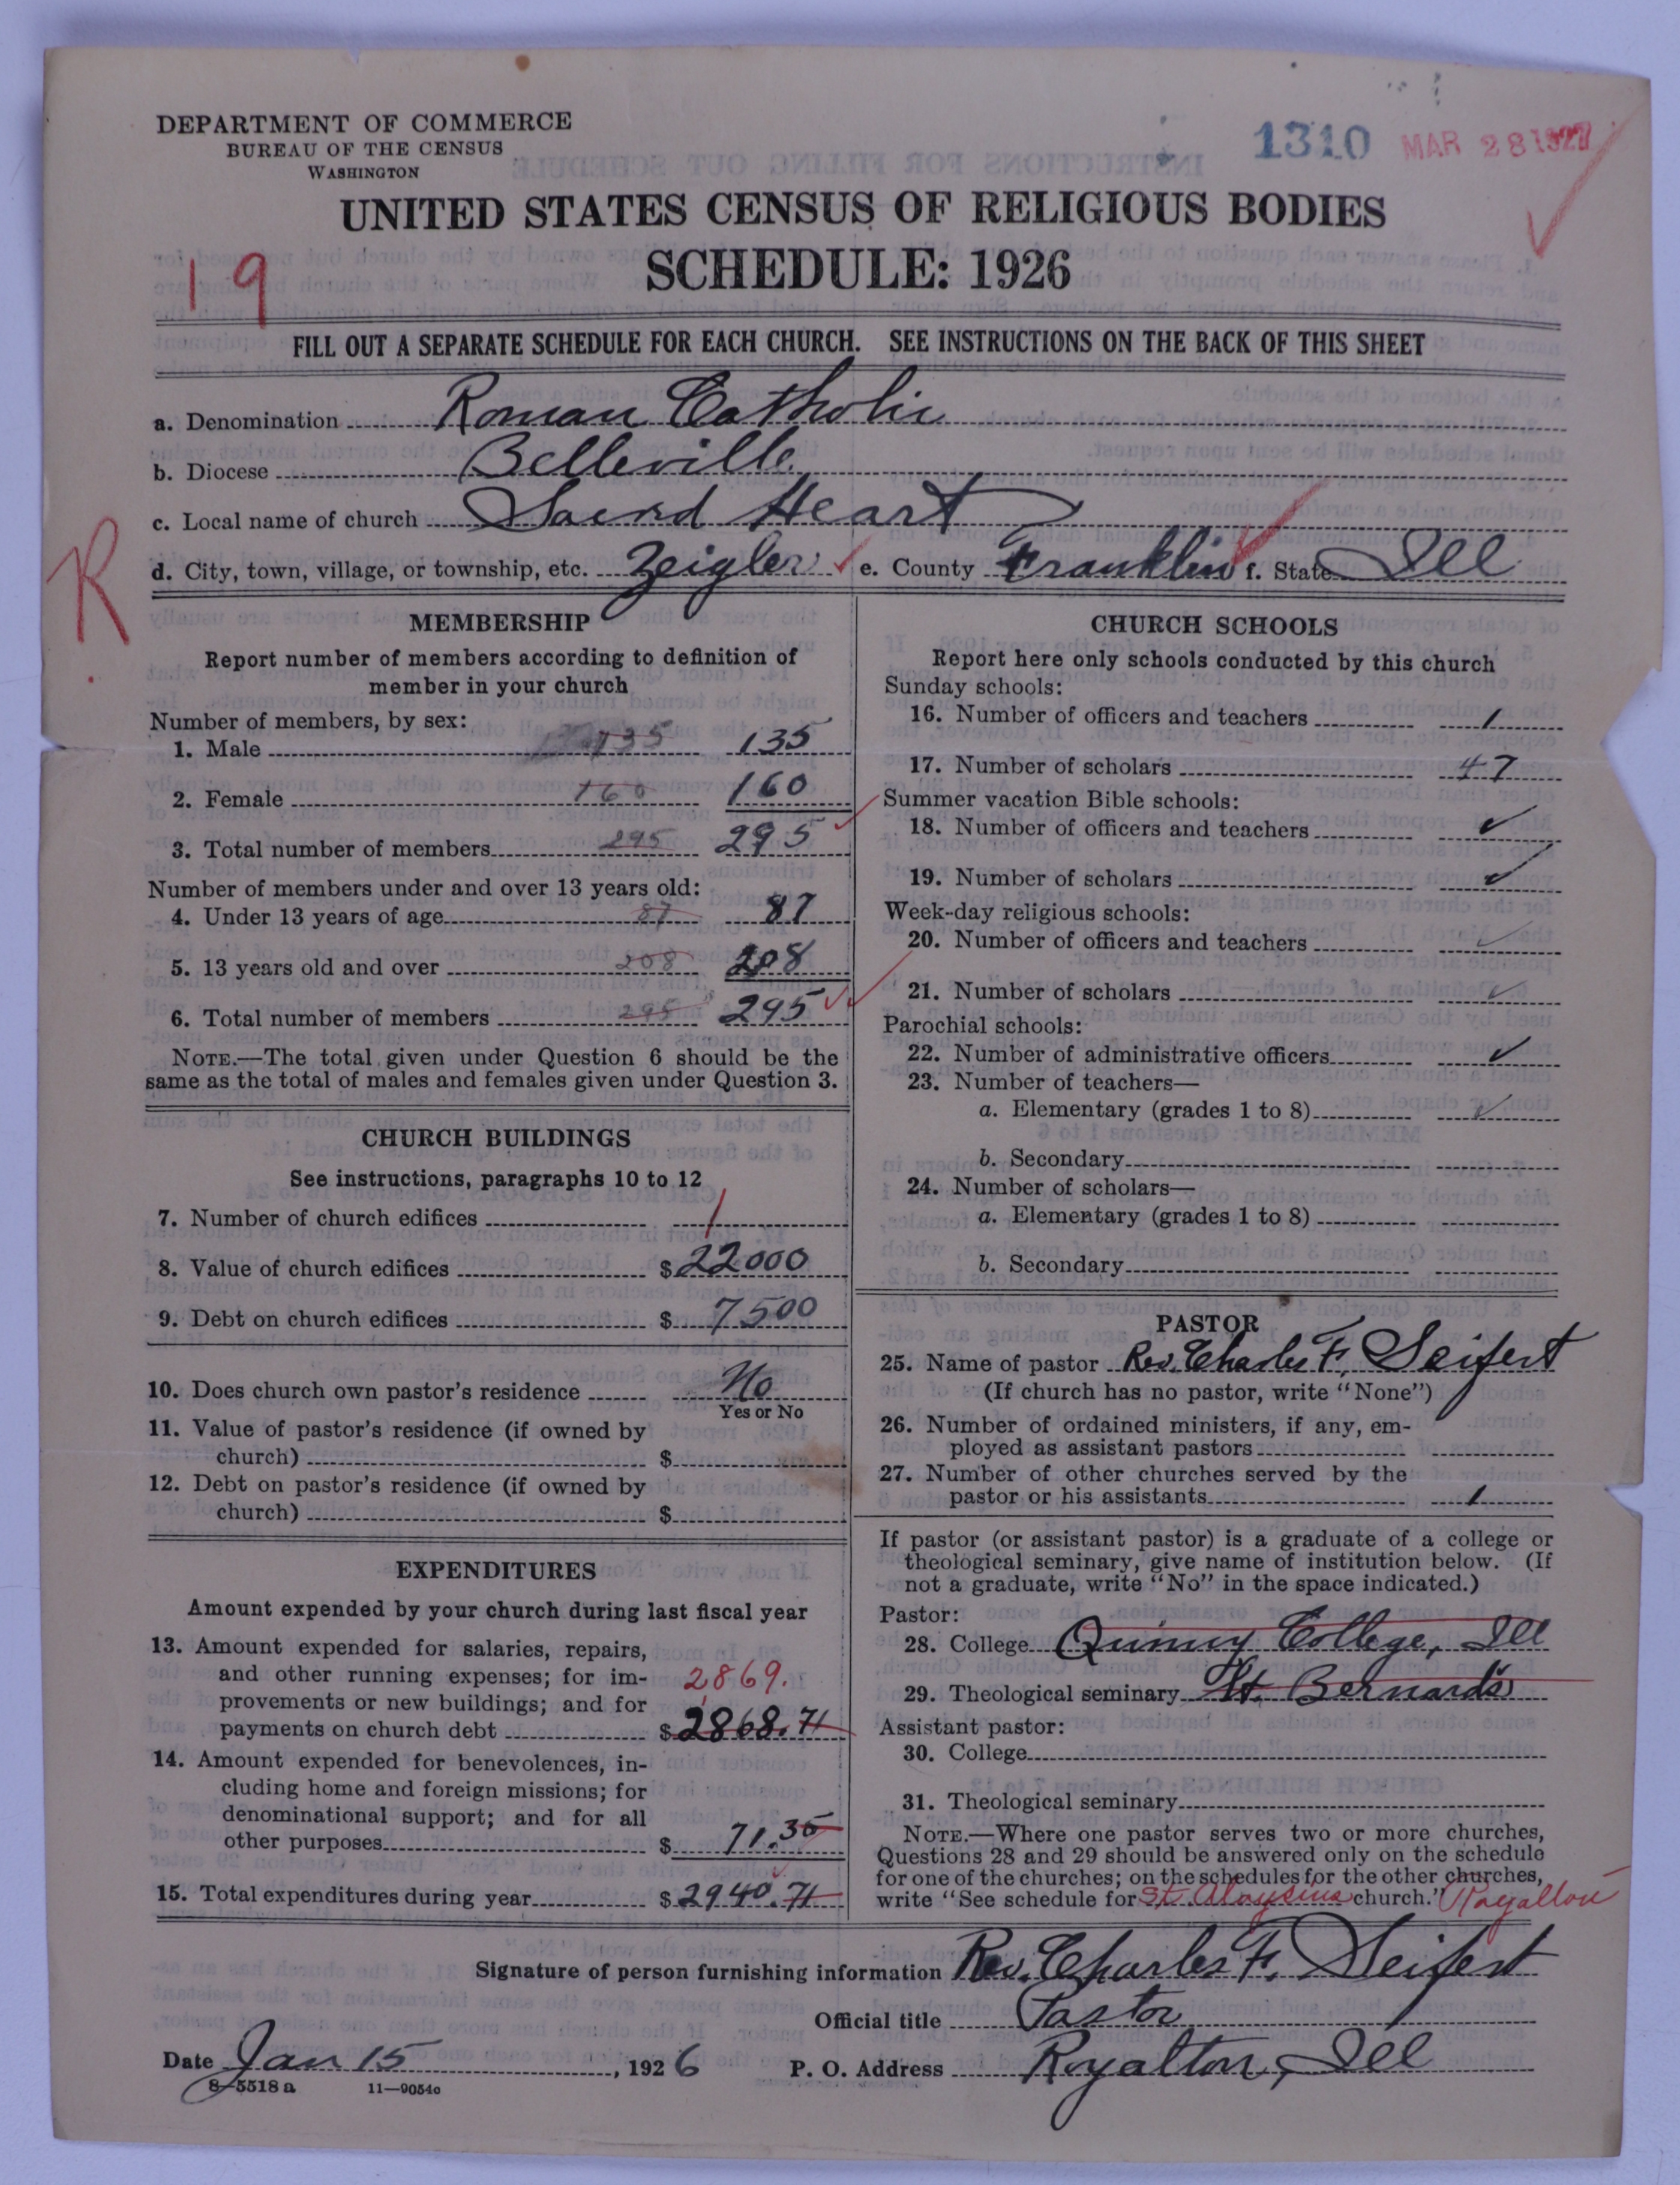 DEPARTMENT OF COMMERCE
BUREAU OF THE CENSUS
WASHINGTON
1310 MAR 28 1927
UNITED STATES CENSUS OF RELIGIOUS BODIES
SCHEDULE: 1926
19
FILL OUT A SEPARATE SCHEDULE FOR EACH CHURCH. SEE INSTRUCTIONS ON THE BACK OF THIS SHEET
a. Denomination Roman Catholic
b. Diocese Belleville
c. Local name of church Sacred Heart
R
d. City, town, village, or township, etc. Zeigler ✓ e. County Franklin ✓ f. State Ill
MEMBERSHIP
Report number of members according to definition of
member in your church
Number of members, by sex:
1. Male 135 135
2. Female 160 160
3. Total number of members 295 295
Number of members under and over 13 years old:
4. Under 13 years of age 87 87
5. 13 years old and over 208 208
6. Total number of members 295 295
NOTE.—The total given under Question 6 should be the
same as the total of males and females given under Question 3.
CHURCH BUILDINGS
See instructions, paragraphs 10 to 12
7. Number of church edifices 1
8. Value of church edifices $ 22000
9. Debt on church edifices $ 7500
10. Does church own pastor's residence No
Yes or No
11. Value of pastor's residence (if owned by
church) $
12. Debt on pastor's residence (if owned by
church) $
EXPENDITURES
Amount expended by your church during last fiscal year
13. Amount expended for salaries, repairs,
and other running expenses; for im-
2869.
provements or new buildings; and for
payments on church debt $ 2868.71
14. Amount expended for benevolences, in-
cluding home and foreign missions; for
denominational support; and for all
other purposes $ 71.35
15. Total expenditures during year $ 2940.71
CHURCH SCHOOLS
Report here only schools conducted by this church
Sunday schools:
16. Number of officers and teachers 1
17. Number of scholars 47
Summer vacation Bible schools:
18. Number of officers and teachers ✓
19. Number of scholars ✓
Week-day religious schools:
20. Number of officers and teachers ✓
21. Number of scholars ✓
Parochial schools:
22. Number of administrative officers ✓
23. Number of teachers—
a. Elementary (grades 1 to 8) ✓
b. Secondary
24. Number of scholars—
a. Elementary (grades 1 to 8)
b. Secondary
PASTOR
25. Name of pastor Rev. Charles F. Seifert
(If church has no pastor, write "None")
26. Number of ordained ministers, if any, em-
ployed as assistant pastors
27. Number of other churches served by the
pastor or his assistants 1
If pastor (or assistant pastor) is a graduate of a college or
theological seminary, give name of institution below. (If
not a graduate, write "No" in the space indicated.)
Pastor:
28. College Quincy College, Ill
29. Theological seminary St. Bernards
Assistant pastor:
30. College
31. Theological seminary
NOTE.—Where one pastor serves two or more churches,
Questions 28 and 29 should be answered only on the schedule
for one of the churches; on the schedules for the other churches,
write "See schedule for St. Aloysius church." Royalton
Signature of person furnishing information Rev. Charles F. Seifert
Official title Pastor
Date Jan 15, 1926 P. O. Address Royalton, Ill
8—5518 a 11—9054c